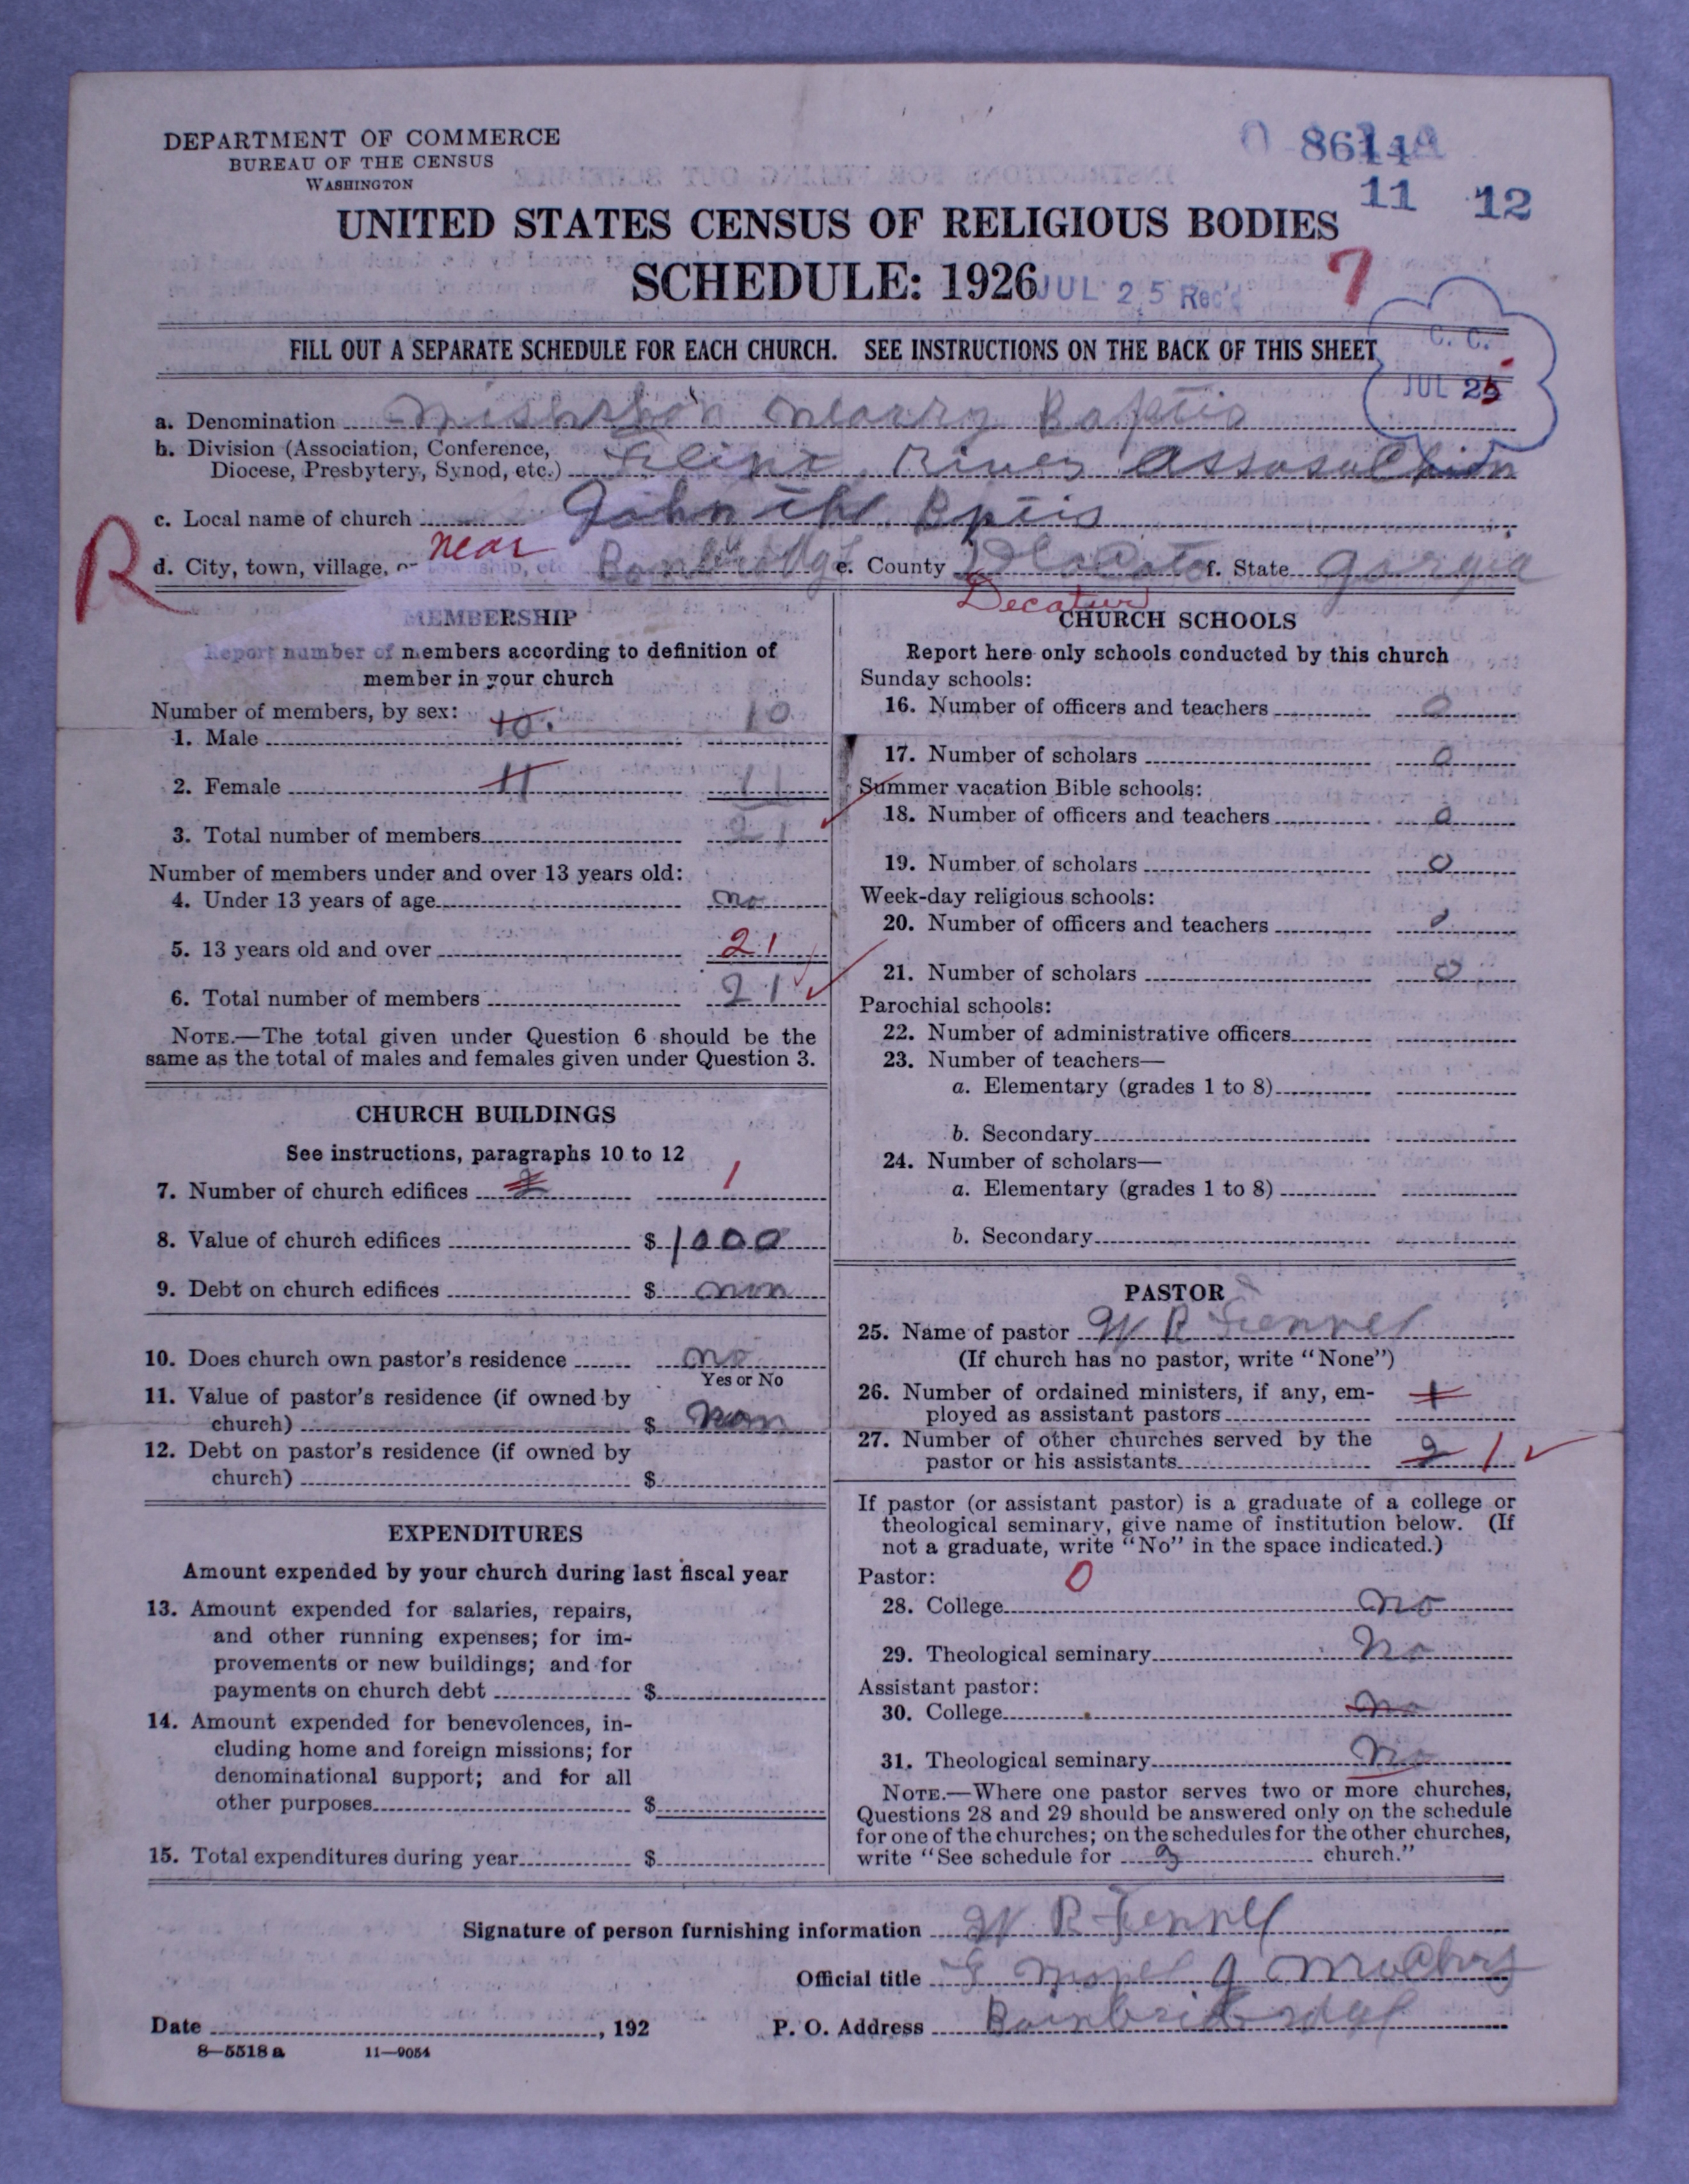 DEPARTMENT OF COMMERCE
BUREAU OF THE CENSUS
WASHINGTON
11 12
UNITED STATES CENSUS OF RELIGIOUS BODIES
SCHEDULE: 1926
JUL 25 Rec'd
7
FILL OUT A SEPARATE SCHEDULE FOR EACH CHURCH. SEE INSTRUCTIONS ON THE BACK OF THIS SHEET
C. C.
JUL 25
a. Denomination Baptis
b. Division (Association, Conference,
Diocese, Presbytery, Synod, etc.) River
c. Local name of church John Bptis
R
d. City, town, village, or township, etc. near e. County Decatur f. State gorgia
MEMBERSHIP
Report number of members according to definition of
member in your church
Number of members, by sex:
1. Male 10. 10
2. Female 11 11
3. Total number of members 21
Number of members under and over 13 years old:
4. Under 13 years of age no
5. 13 years old and over 21
6. Total number of members 21
NOTE.—The total given under Question 6 should be the
same as the total of males and females given under Question 3.
CHURCH BUILDINGS
See instructions, paragraphs 10 to 12
7. Number of church edifices 1
8. Value of church edifices $ 1000
9. Debt on church edifices $ non
10. Does church own pastor's residence no
Yes or No
11. Value of pastor's residence (if owned by
church) $ non
12. Debt on pastor's residence (if owned by
church) $
EXPENDITURES
Amount expended by your church during last fiscal year
13. Amount expended for salaries, repairs,
and other running expenses; for im-
provements or new buildings; and for
payments on church debt $
14. Amount expended for benevolences, in-
cluding home and foreign missions; for
denominational support; and for all
other purposes $
15. Total expenditures during year $
CHURCH SCHOOLS
Report here only schools conducted by this church
Sunday schools:
16. Number of officers and teachers 0
17. Number of scholars 0
Summer vacation Bible schools:
18. Number of officers and teachers 0
19. Number of scholars 0
Week-day religious schools:
20. Number of officers and teachers 0
21. Number of scholars 0
Parochial schools:
22. Number of administrative officers
23. Number of teachers—
a. Elementary (grades 1 to 8)
b. Secondary
24. Number of scholars—
a. Elementary (grades 1 to 8)
b. Secondary
PASTOR
25. Name of pastor W R Fennel
(If church has no pastor, write "None")
26. Number of ordained ministers, if any, em-
ployed as assistant pastors 1
27. Number of other churches served by the
pastor or his assistants 2 1
If pastor (or assistant pastor) is a graduate of a college or
theological seminary, give name of institution below. (If
not a graduate, write "No" in the space indicated.)
Pastor: 0
28. College no
29. Theological seminary No
Assistant pastor:
30. College no
31. Theological seminary No
NOTE.—Where one pastor serves two or more churches,
Questions 28 and 29 should be answered only on the schedule
for one of the churches; on the schedules for the other churches,
write "See schedule for church."
Signature of person furnishing information W R Fennel
Official title
Date , 192 P. O. Address
8—5518 a 11—9054